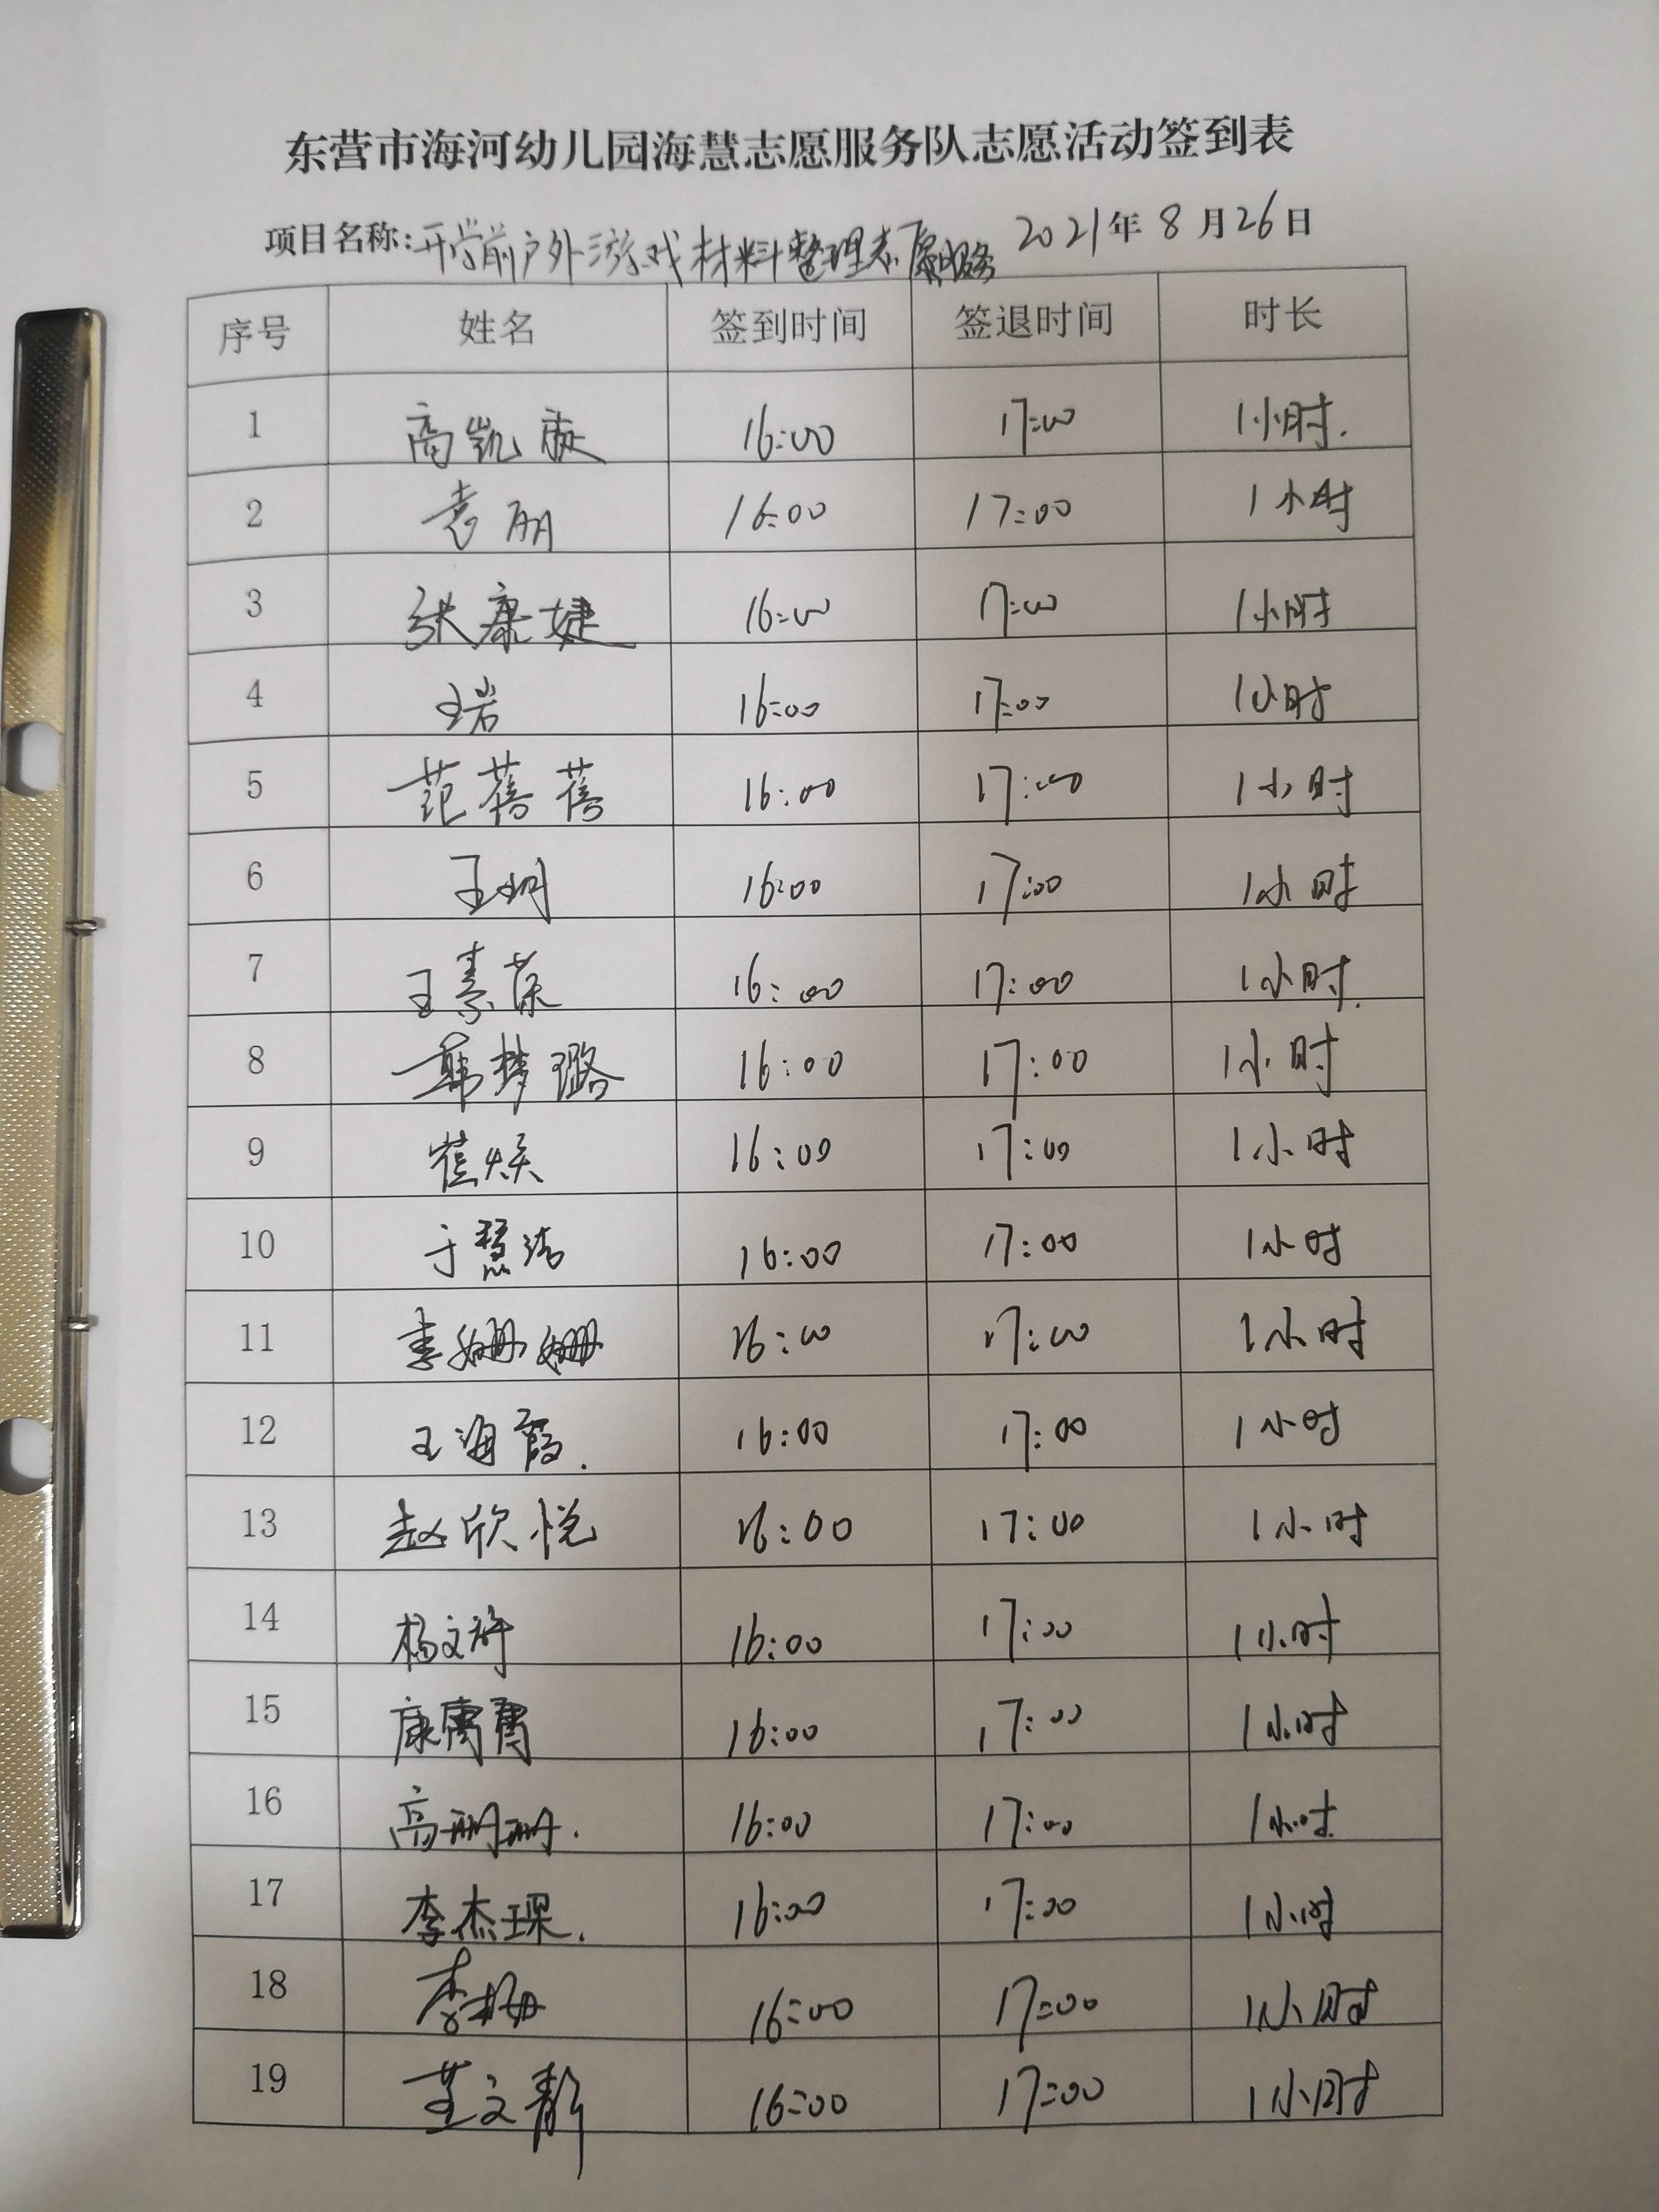 东营市海河幼儿园海慧志愿服务队志愿活动签到表
项目名称:开学前户外游戏材料整理志愿服务 2021年8月26日
序号 姓名 签到时间 签退时间 时长
1 高凯 16:00 17:00 1小时.
2 袁丽 16:00 17:00 1小时
3 张康婕 16:00 17:00 1小时
4 王岩 16:00 17:00 1小时
5 范蓓蓓 16:00 17:00 1小时
6 王 16:00 17:00 1小时
7 王素荣 16:00 17:00 1小时.
8 韩梦璐 16:00 17:00 1小时
9 崔焕 16:00 17:00 1小时
10 于慧洁 16:00 17:00 1小时
11 李姗姗 16:00 17:00 1小时
12 王海霞. 16:00 17:00 1小时
13 赵欣悦 16:00 17:00 1小时
14 杨文 16:00 17:00 1小时
15 康 16:00 17:00 1小时
16 高珊珊. 16:00 17:00 1小时
17 李杰琛. 16:00 17:00 1小时
18 李梅 16:00 17:00 1小时
19 文静 16:00 17:00 1小时